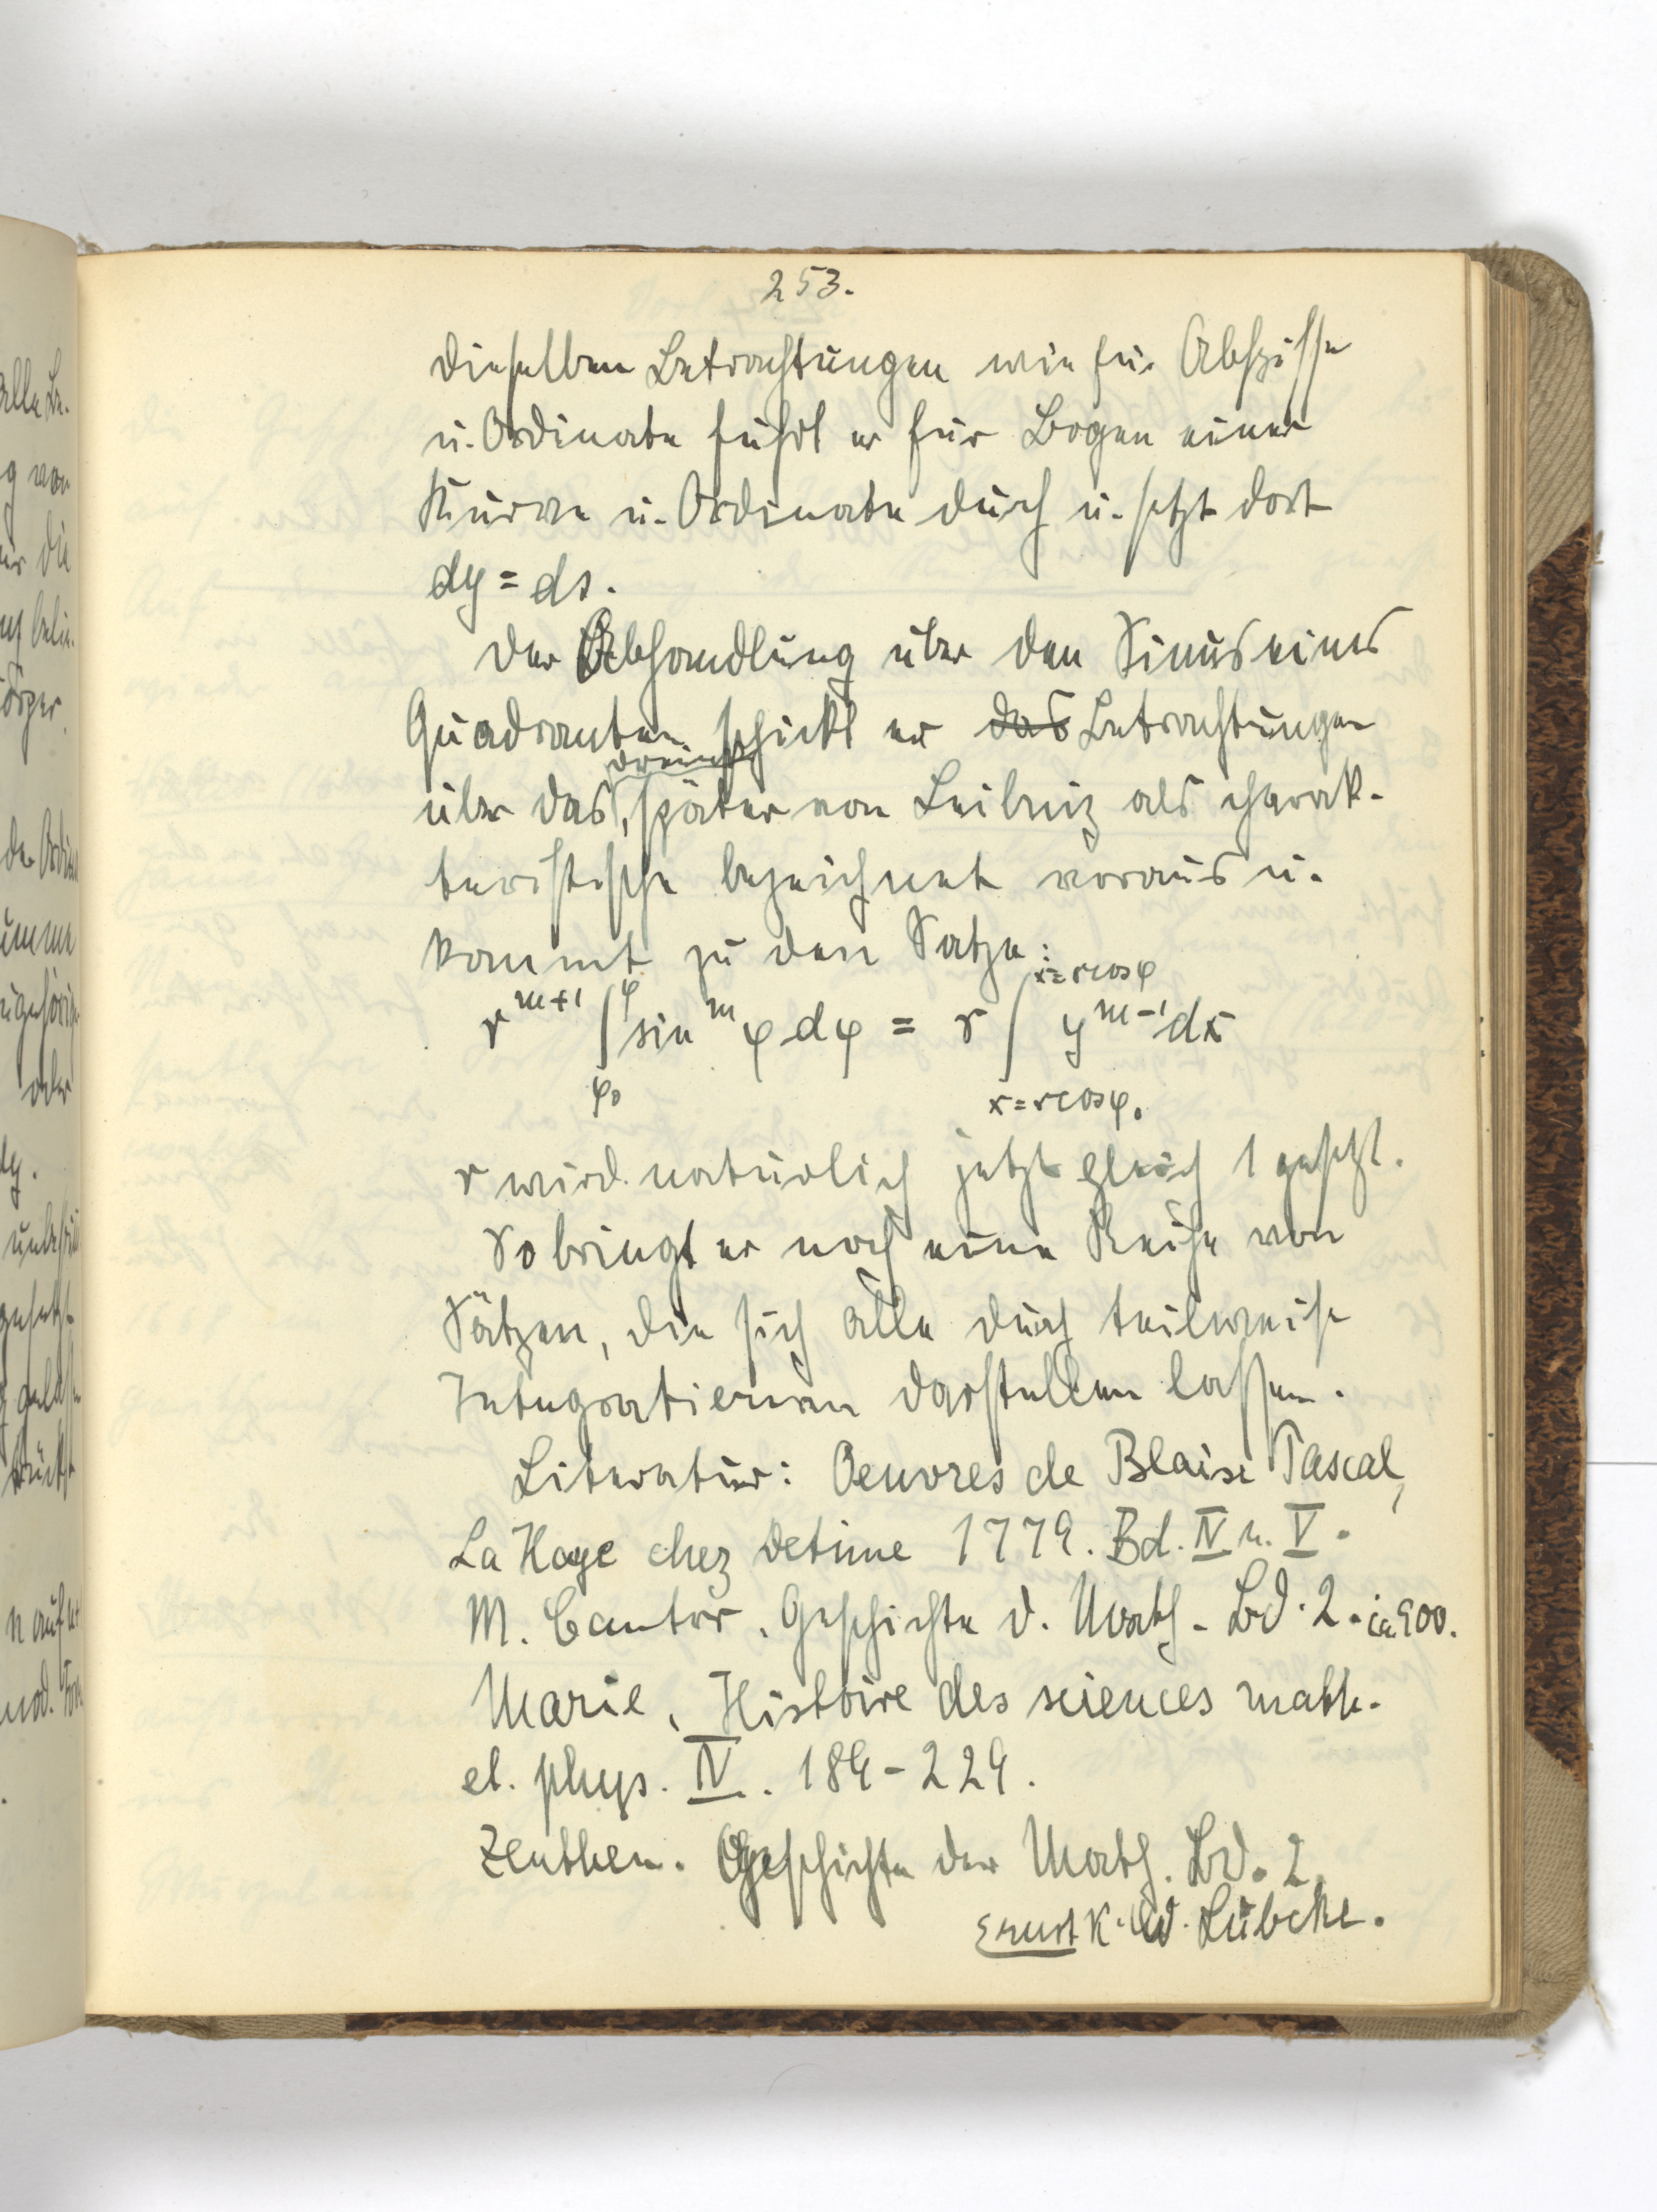 253.
Dieselben Betrachtungen wie für Abszisse
u. Ordinate führt er für Bogen einer
Kurve u. Ordinate durch u. setzt dort
dy = ds.
Der Abhandlung über den Sinus eines
Quadranten schickt er das Betrachtungen
über das, später von Leibniz als charak-
teristische bezeichnet voraus u.
kommt zu den Satze:
r^{m+1} ∫_{φ₀}^{φ} sin^m φ dφ = r ∫_{x=r cos φ₀}^{x=r cos φ} y^{m-1} dx
r wird natürlich jetzt gleich 1 gesetzt.
So bringt er noch eine Reihe von
Sätzen, die sich alle durch teilweise
Integrationen darstellen lassen.
Literatur: Oeuvres de Blaise Pascal,
La Haye chez Detune 1779. Bd. IV u. V.
M. Cantor, Geschichte d. Math. Bd. 2. ca 900.
Marie, Histoire des sciences math.
et. phys. IV. 184-229.
Zeuthen. Geschichte der Math. Bd. 2.
Ernst K. W. Lübcke.